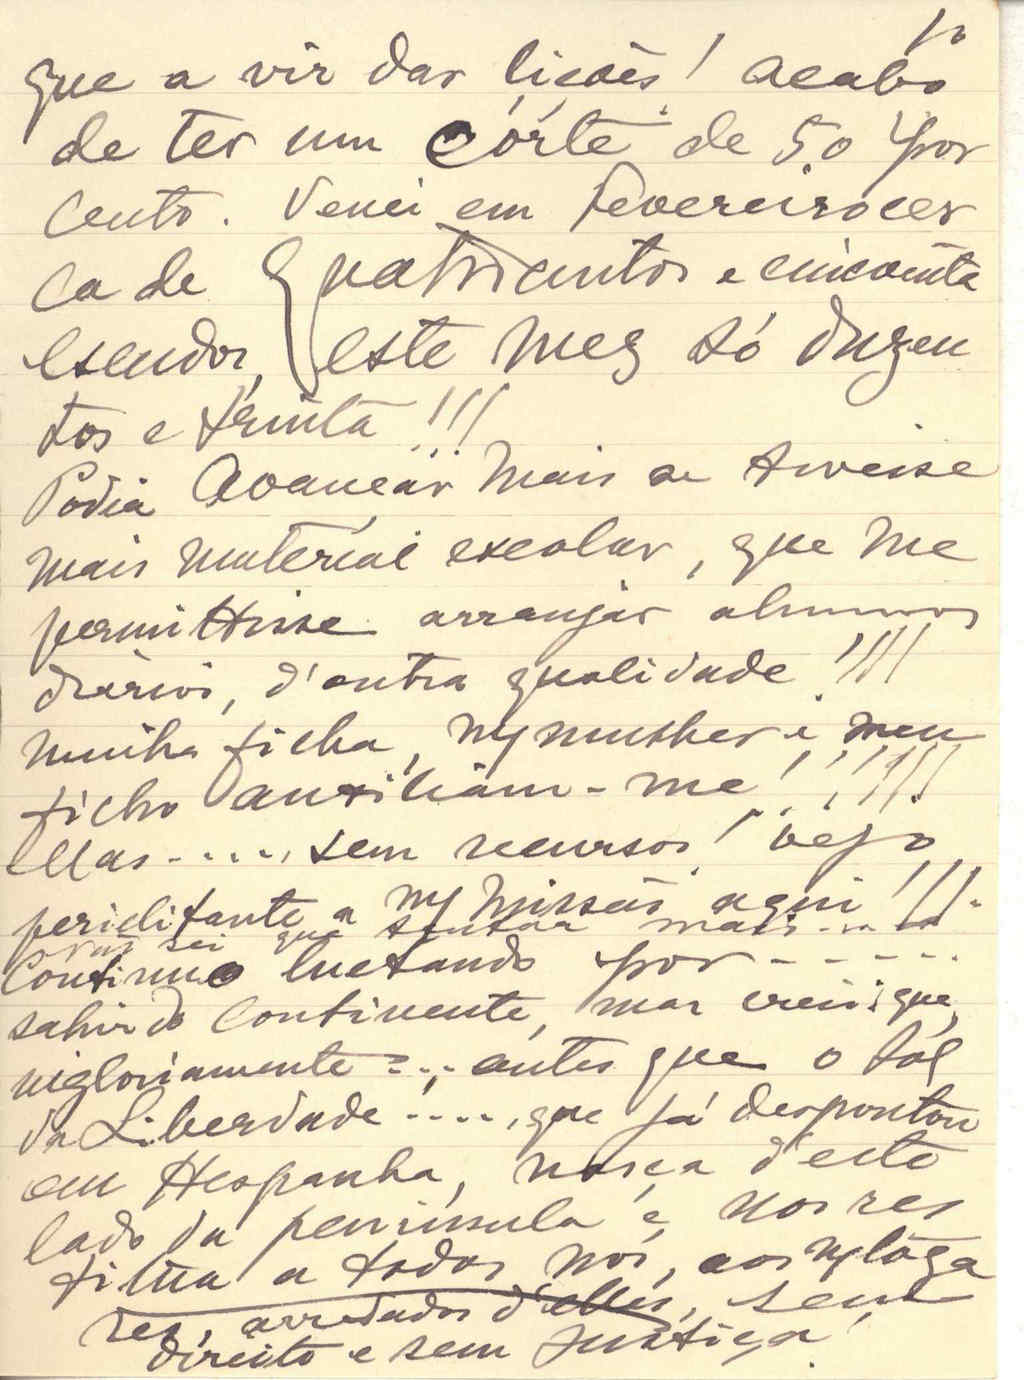 que a vir dar lições! acabo
de ter um córte de 50 por
cento. Venci em Fevereiro cer
ca de Quatrocentos e cincoenta
escudos, este mez só duzen
tos e trinta!!!
Podia Avançar mais se tivesse
mais material escolar, que me
permittisse arranjar alumnos
diarios, d'outra qualidade!!!!
minha filha, mulher e meu
filho auxiliam-me!!!!!!
Ellas....., sem recursos! vejo
periclitante a missão aqui!!!.
pois sei que
Continuo luctando por - - - - - -
sahir do Continente, mas creio que,
ingloriamente =... antes que o sól
da Liberdade....., que já despontou
em Hespanha, nasça d'este
lado da peninsula e, nos res
titua a todos nós, aos logá
res, arredados d'elles, sem
direito e sem justiça!